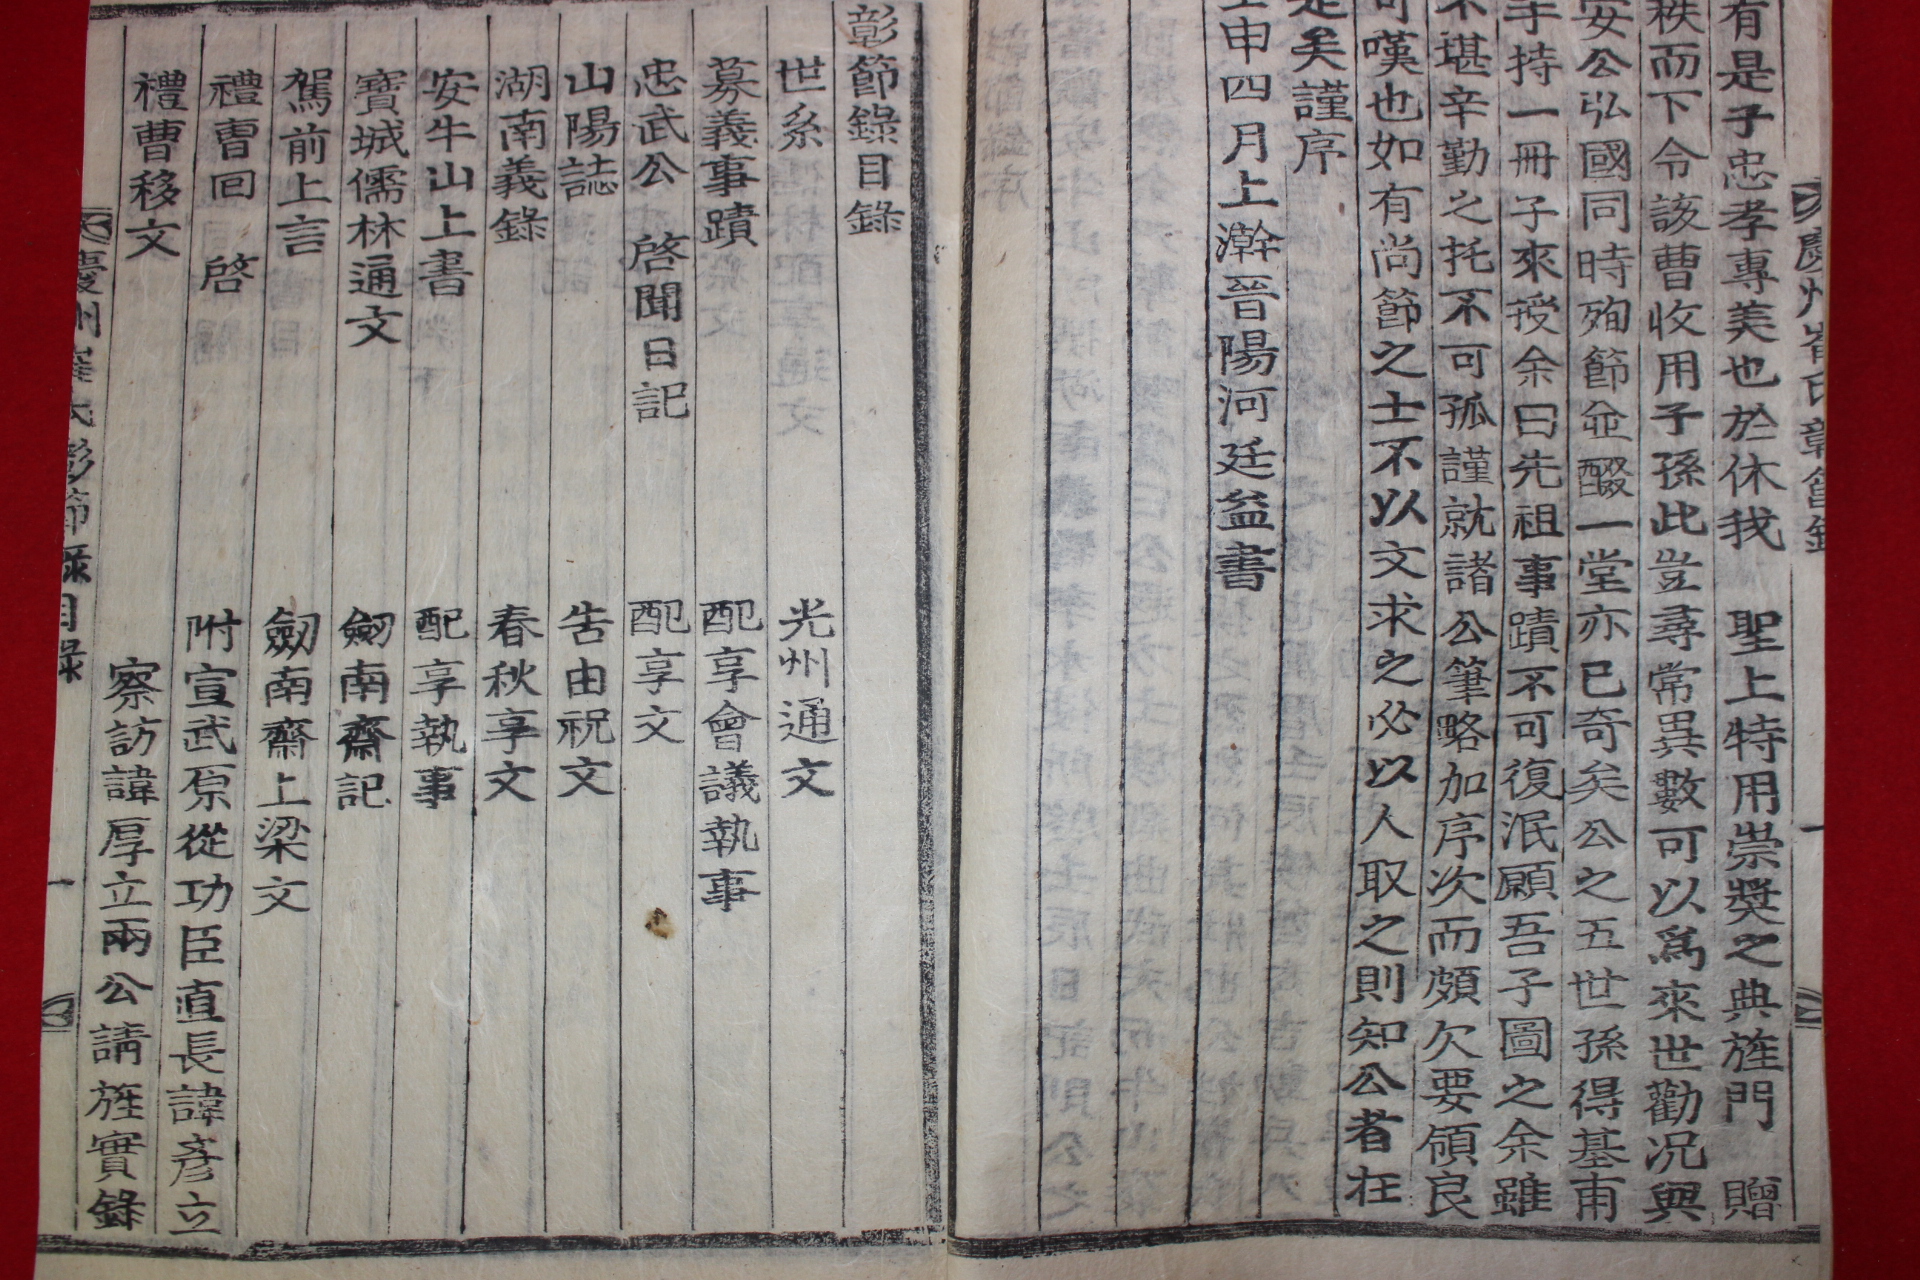 有是子忠孝專美也於休我　聖上特用崇奬之典旌門　贈
秩而下令該曹收用子孫此豈尋常異數可以爲來世勸況與
安公弘國同時殉節並醊一堂亦已奇矣公之五世孫得基甫
手持一冊子來授余曰先祖事蹟不可復泯願吾子圖之余雖
不堪辛勤之托不可孤謹就諸公筆略加序次而頗欠要領良
可嘆也如有尚節之士不以文求之必以人取之則知公者在
是矣謹序
壬申四月上澣晉陽河廷益書
彰節錄目錄
世系
光州通文
募義事蹟
配享會議執事
忠武公　啓聞日記
配享文
山陽誌
告由祝文
湖南義錄
春秋享文
安牛山上書
配享執事
寶城儒林通文
劒南齋記
駕前上言
劒南齋上梁文
禮曺回　啓
附宣武原從功臣直長諱彦立
禮曹移文
察訪諱厚立兩公請旌實錄
慶州崔氏彰節錄目錄　一
慶州崔氏彰節錄　一